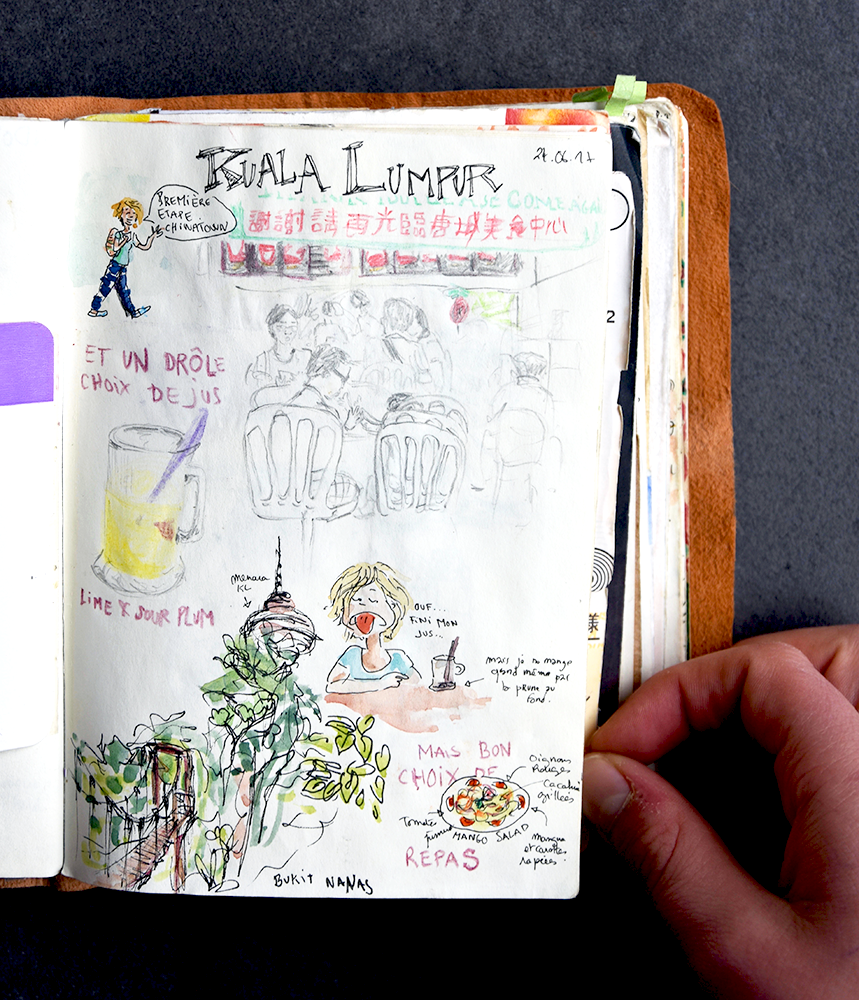 KUALA LUMPUR
27.06.17
THANK YOU PLEASE COME AGAIN
PREMIÈRE
ETAPE
CHINATOWN
謝謝請再光臨唐城美食中心
2
ET UN DRÔLE
CHOIX DE JUS
LIME & SOUR PLUM
Menara
KL
OUF...
FINI MON
JUS...
mais je ne mange
quand même pas
la prune au
fond.
様
MAIS BON
CHOIX DE
REPAS
Oignons
Rouges
Cacahuè
grillées
Tomate
MANGO SALAD
Mangue
et carottes
rapées
BUKIT NANAS